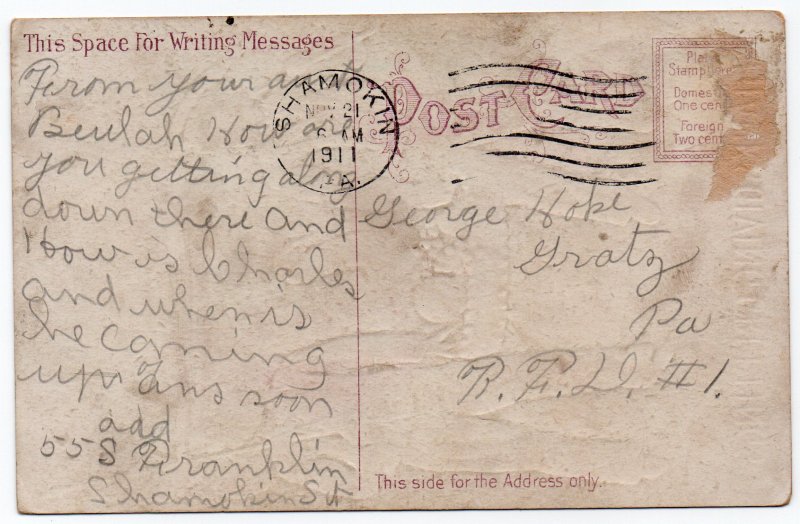 This Space For Writing Messages
From your aunt
Beulah How are
you getting along
down there and
How is Charles
and when is
he coming
up ans soon
add
55 S Franklin
Shamokin St
SHAMOKIN
NOV 21
AM
1911
PA.
POST CARD
Place
Stamp Here
Domestic
One cent
Foreign
Two cents
George Hoke
Gratz
Pa
R. F. D. #1.
This side for the Address only.